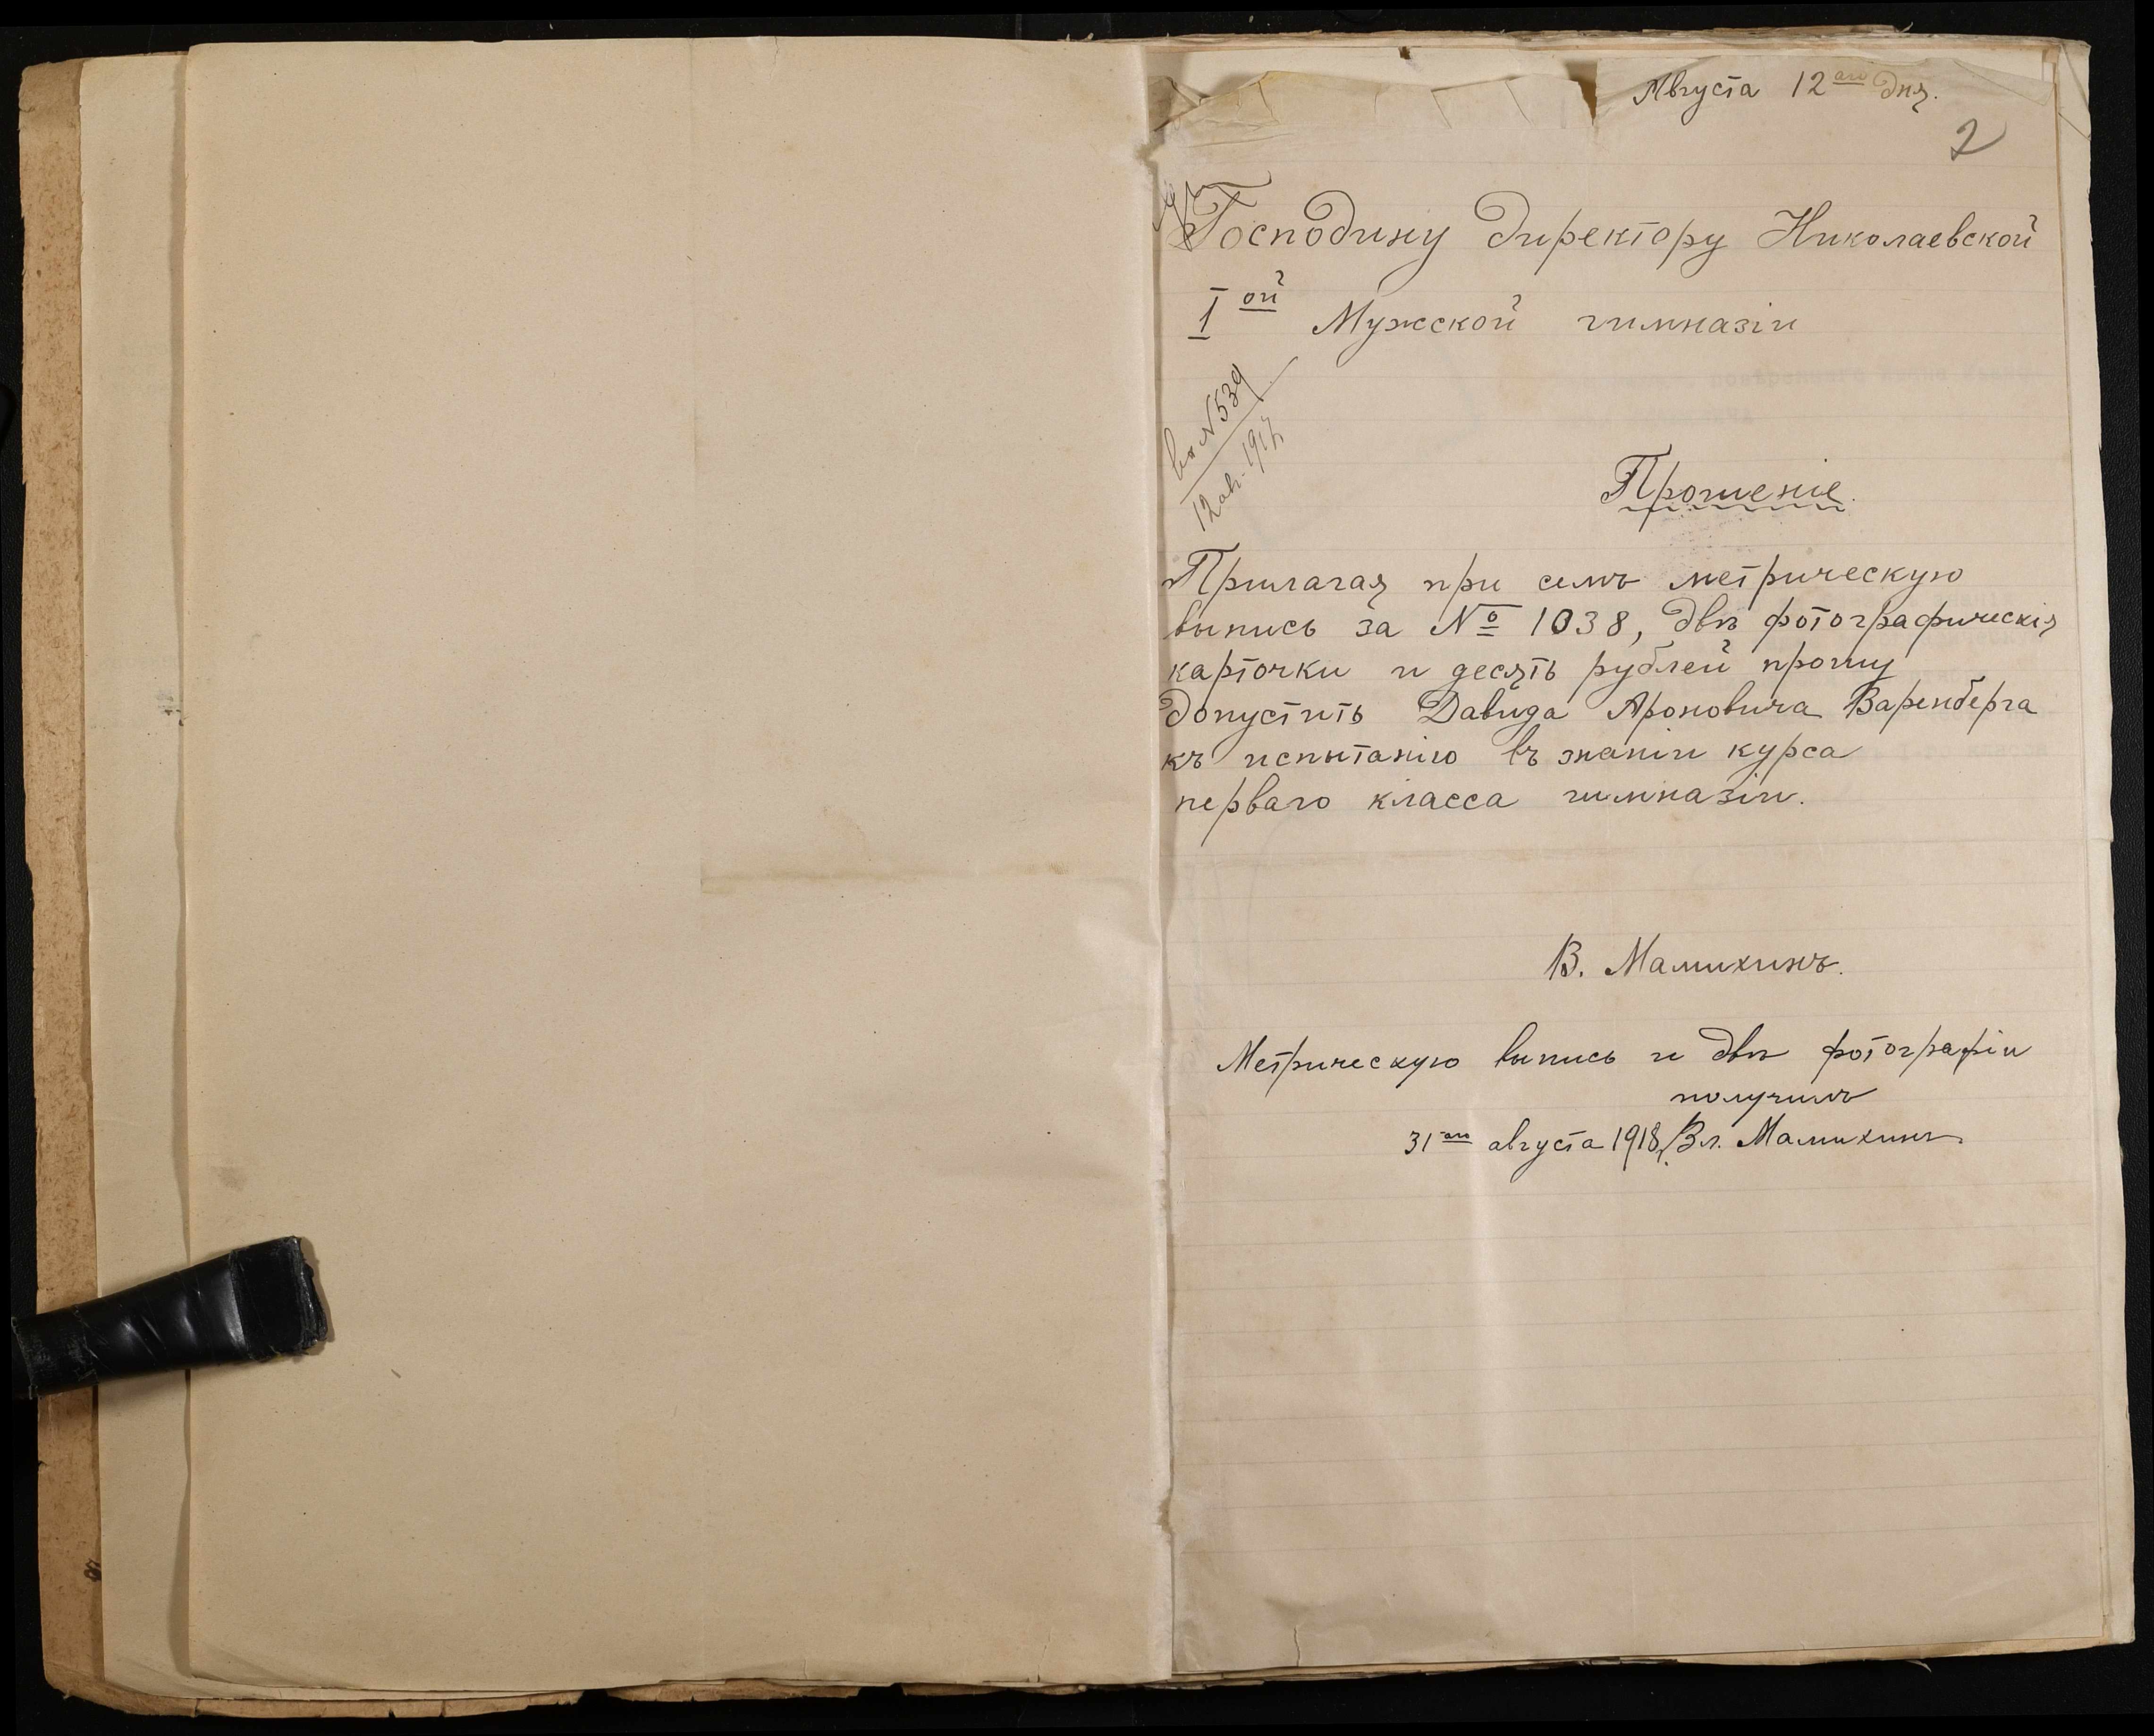 Августа 12аго дня.
2
Господину Директору Николаевской
Iой Мужской гимназіи
вх №539
12 авг. 1917
Прошеніе.
Прилагая при семъ метрическую
выпись за № 1038, двѣ фотографическія
карточки и десять рублей прошу
допустить Давида Ароновича Варенберга
къ испытанію въ знаніи курса
перваго класса гимназіи.
В. Мамихинъ.
Метрическую выпись и двѣ фотографіи
получилъ
31аго августа 1918 Вл. Мамихинъ